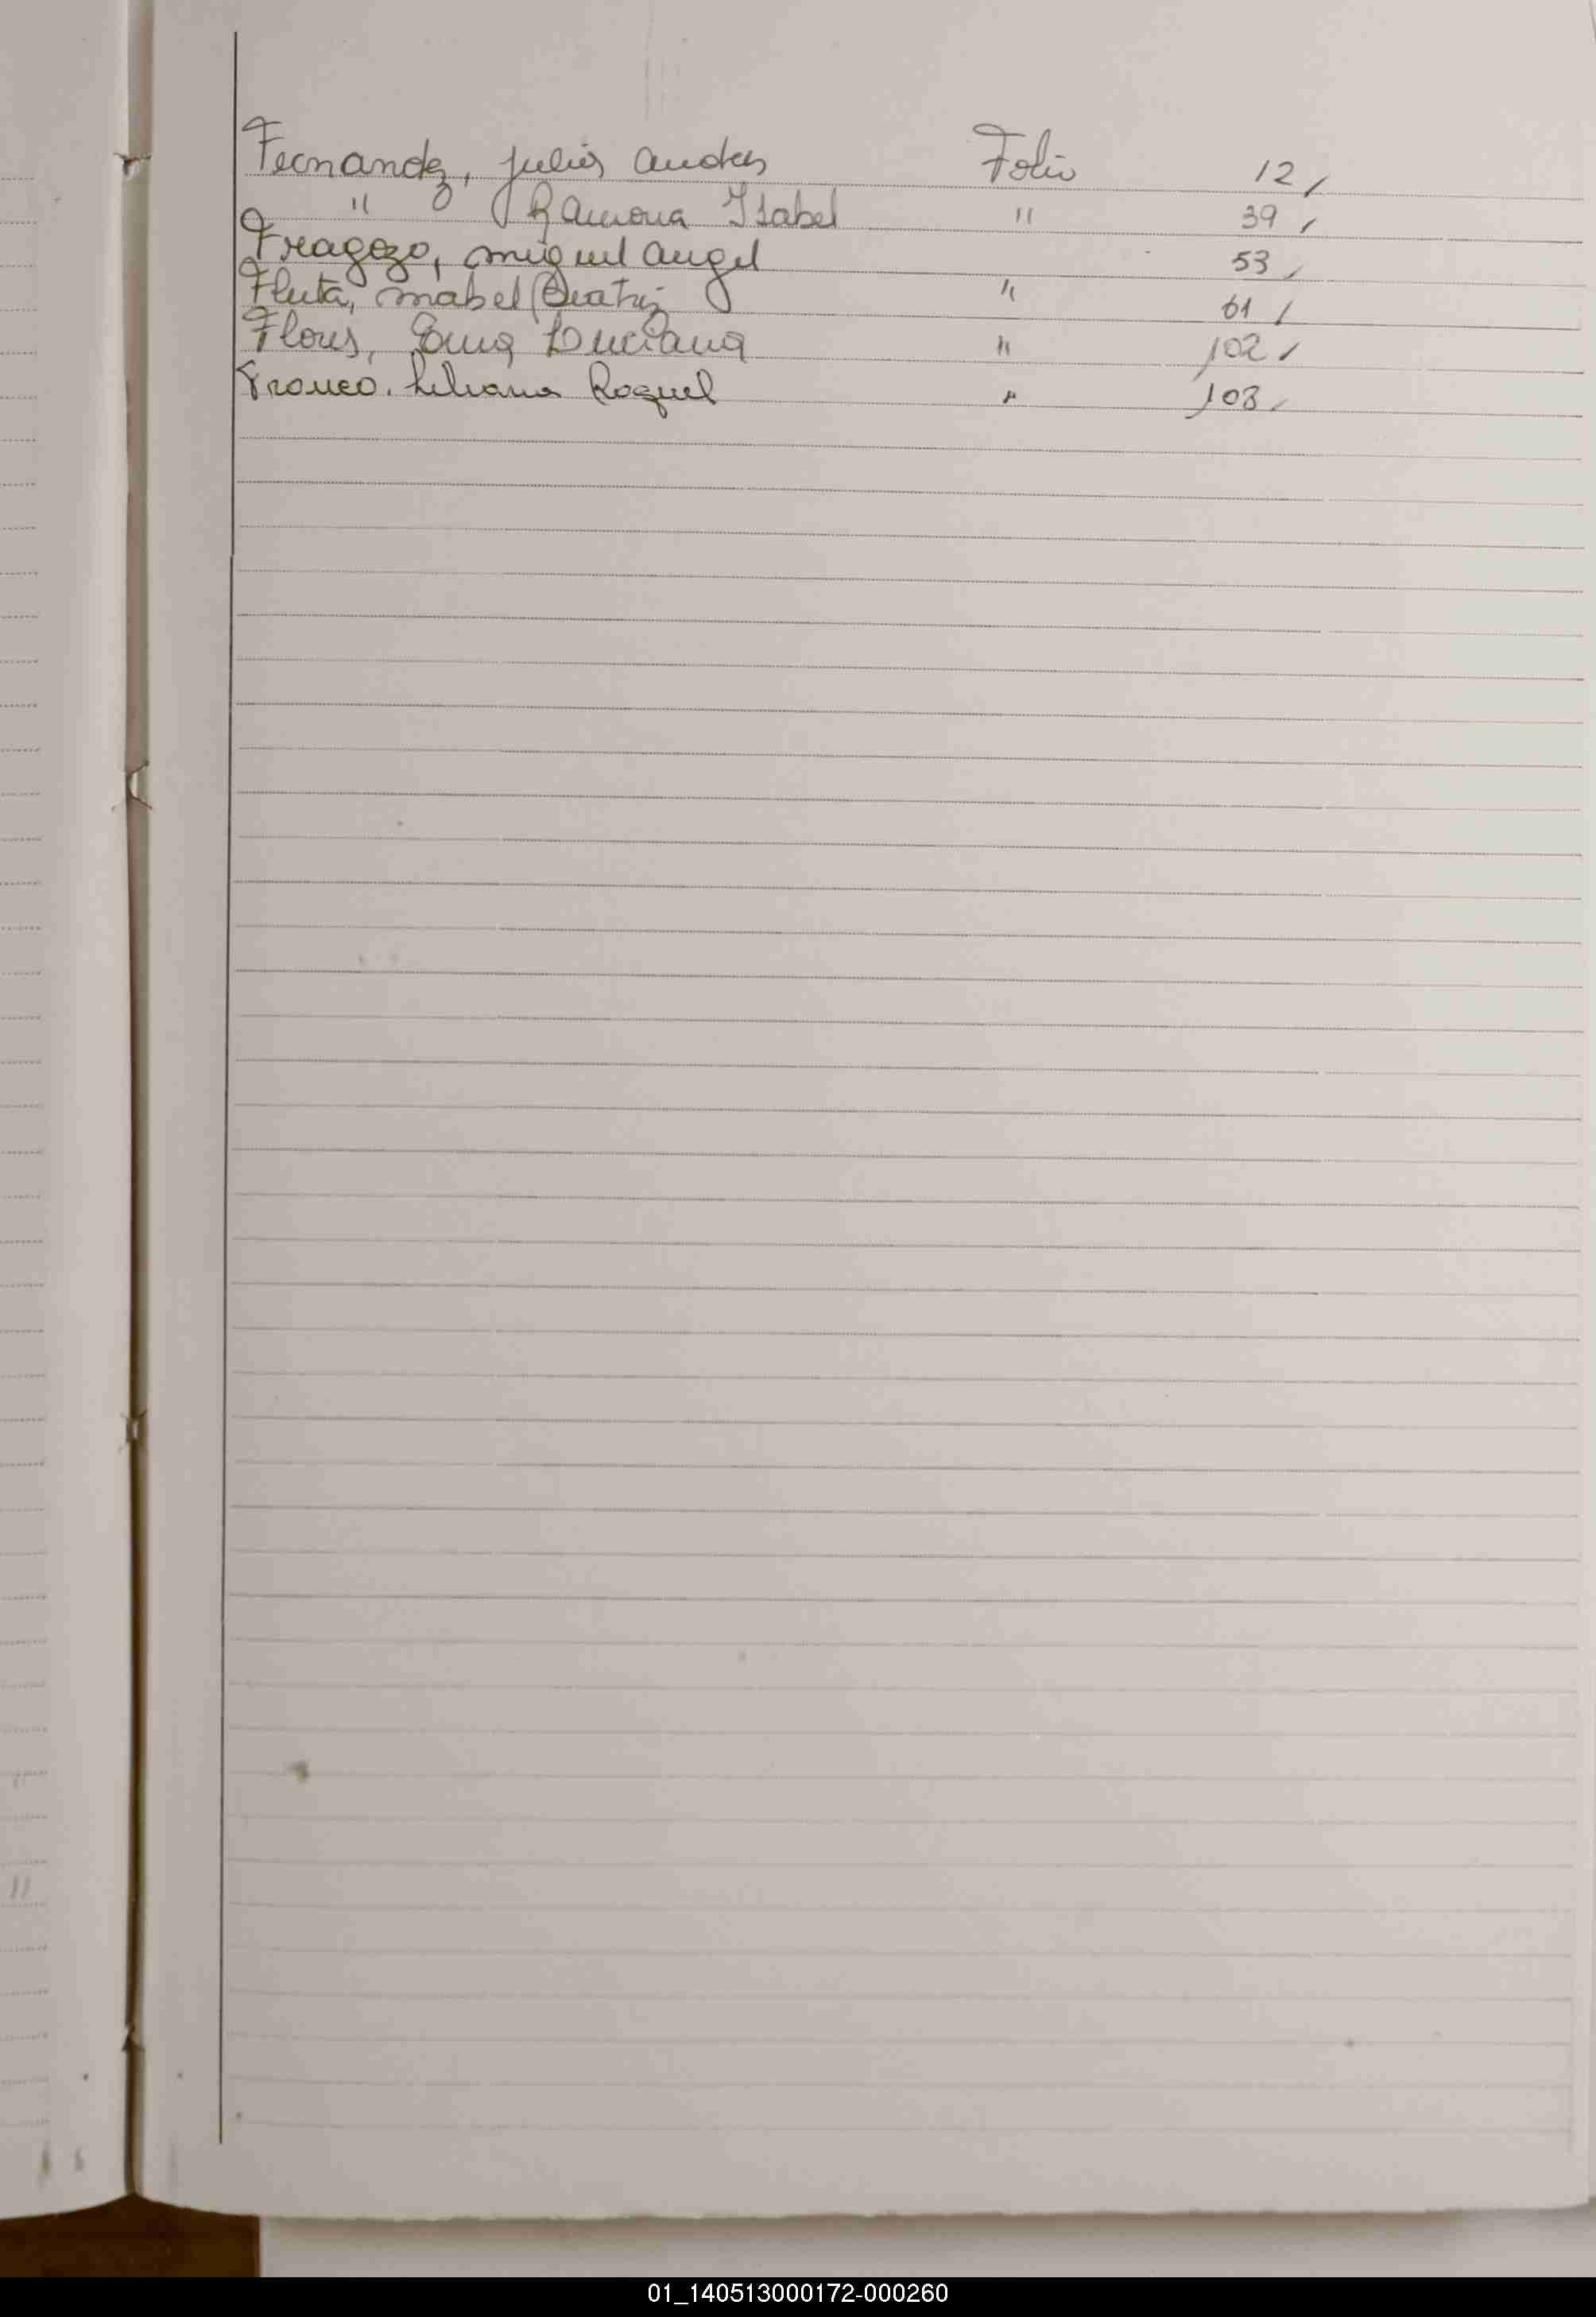 Fernandez, Julio Andres Folio 12 /
" Ramona Isabel " 39 /
Fragozo, Miguel Angel 53 /
Fluta, Mabel Beatriz " 61 /
Flores, Luciana " 102 /
Franco. Liliana Raquel " 108 /
01_140513000172-000260